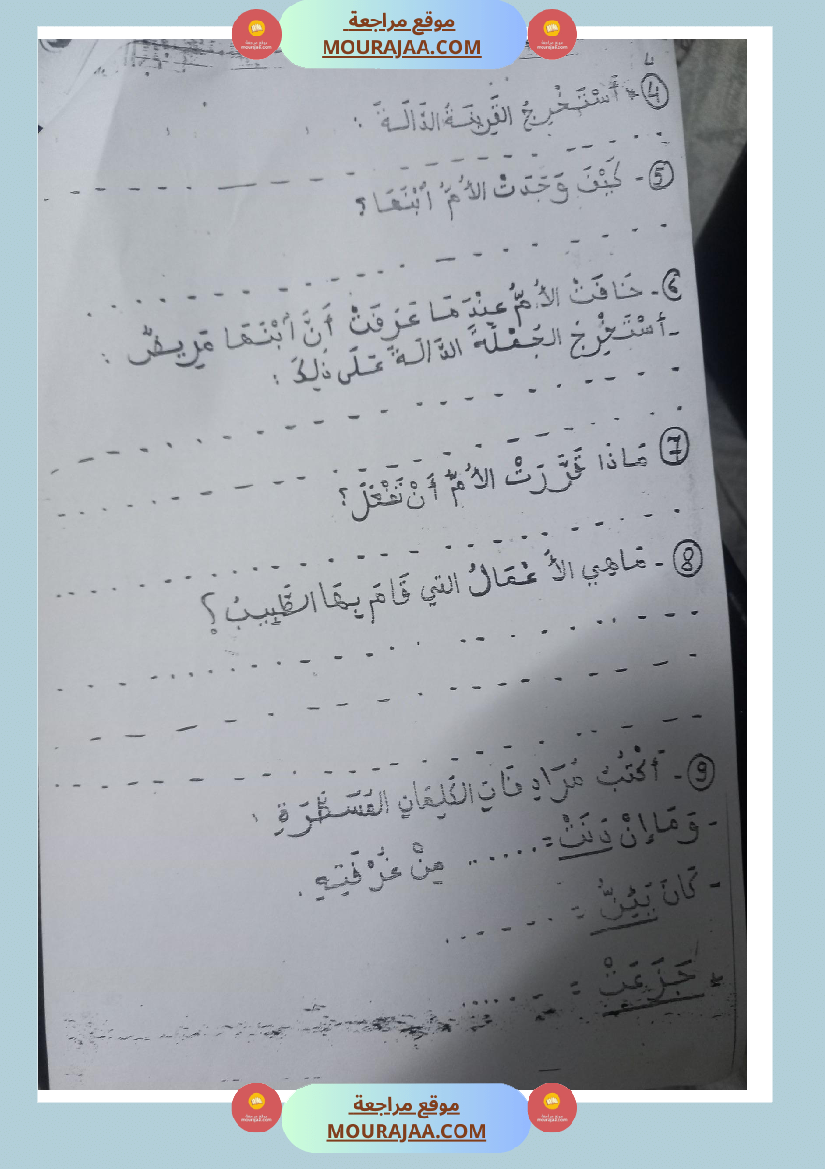 موقع مراجعة
MOURAJAA.COM
4 - أَسْتَخْرِجُ القَرِينَةَ الدَّالَةَ :
5 - كَيْفَ وَجَدَتْ الأُمُّ ٱبْنَهَا ؟
6 - خَافَتْ الأُمُّ عِنْدَمَا عَرَفَتْ أَنَّ ٱبْنَهَا مَرِيضٌ :
- أَسْتَخْرِجُ الجُمْلَةَ الدَّالَةَ عَلَى ذَلِكَ :
7 مَاذَا قَرَّرَتْ الأُمُّ أَنْ تَفْعَلَ ؟
8 - مَاهِي الأَعْمَالُ التي قَامَ بِهَا الطَّبِيبُ ؟
9 - أَكْتُبُ مُرَادِفَاتِ الكَلِمَاتِ المُسَطَّرَةِ :
- وَمَا إِنْ دَنَتْ = ...... مِنْ غُرْفَتِهِ .
- كَانَ يَئِنُّ = ......
* جَزِعَتْ = ......
موقع مراجعة
MOURAJAA.COM